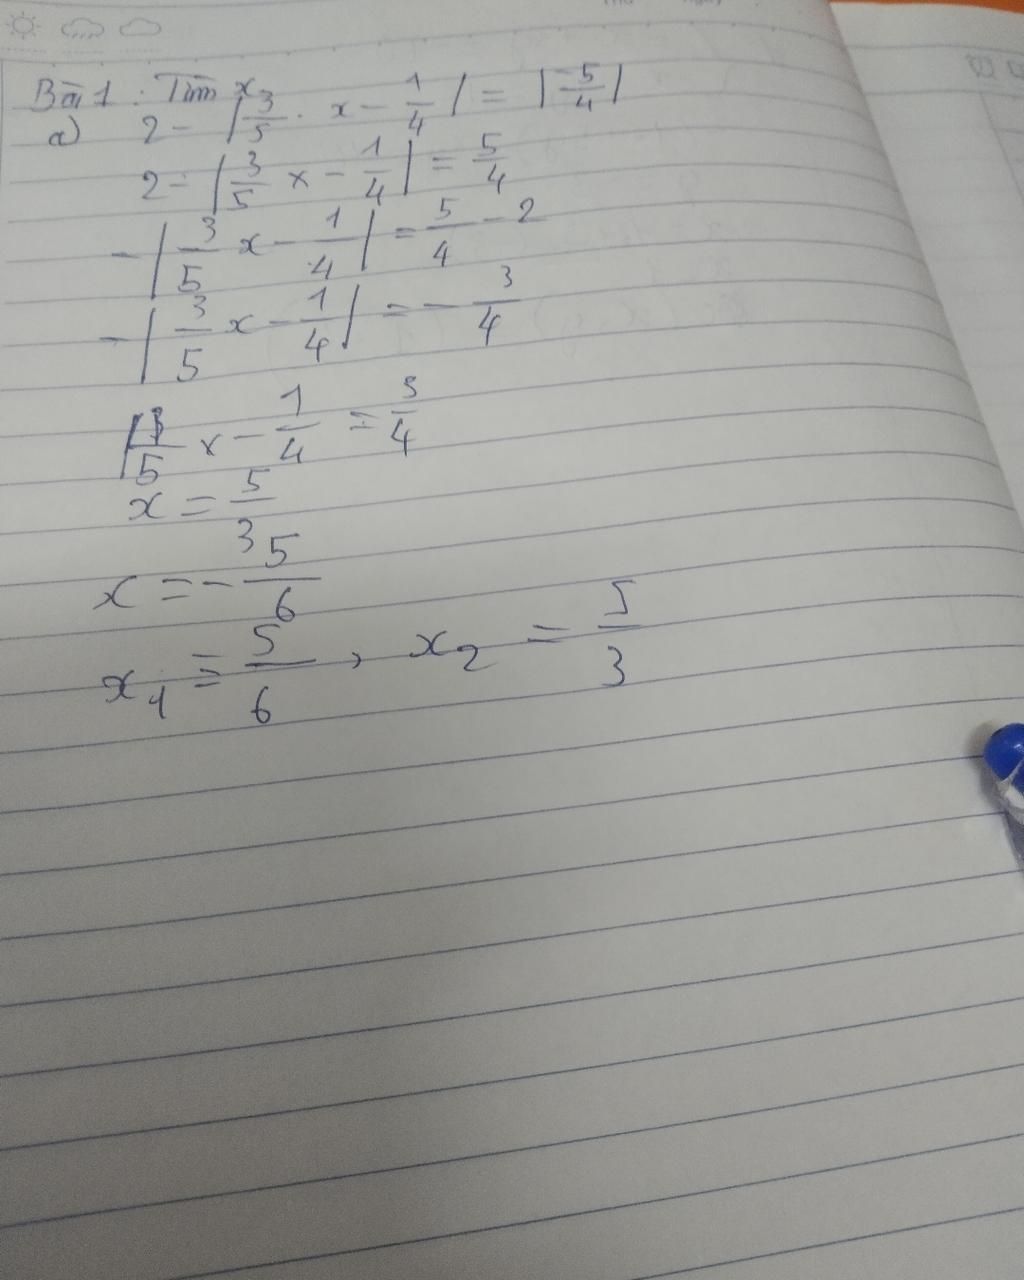 Bài 1 : Tìm x
a) 2 - |3/5 . x - 1/4| = |-5/4|
2 - |3/5 x - 1/4| = 5/4
- |3/5 x - 1/4| = 5/4 - 2
- |3/5 x - 1/4| = - 3/4
|3/5 x - 1/4 = 3/4
x = 5/3
x = - 5/6
x1 = 5/6 , x2 = 5/3